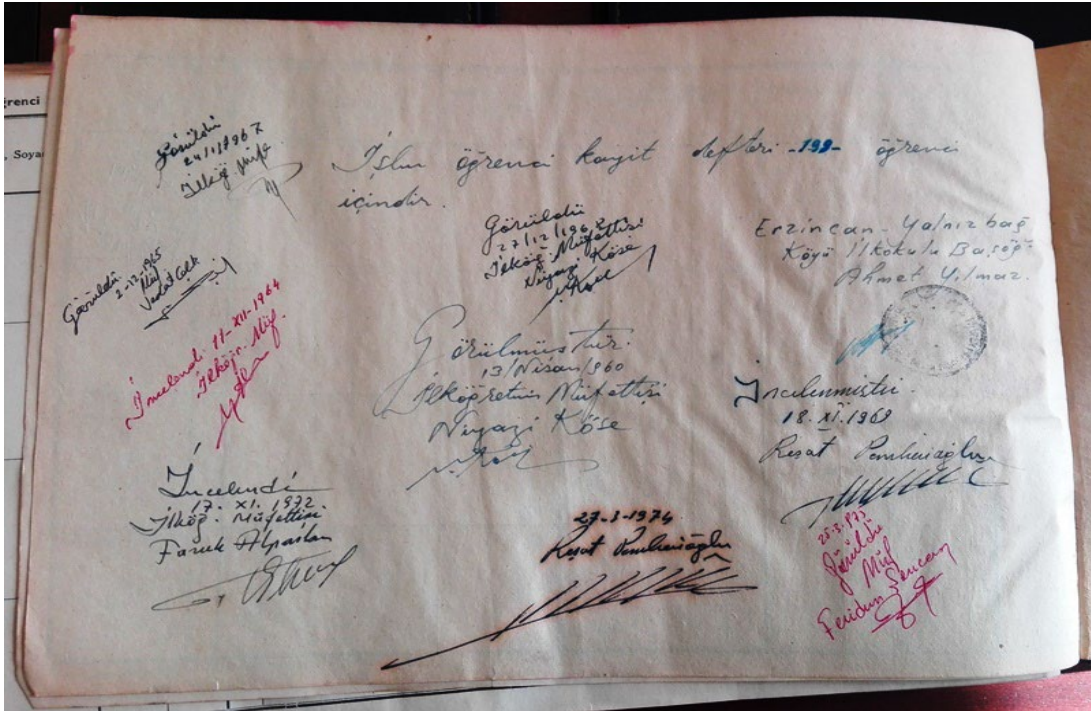 ğrenci
Soya
Görüldü
24/1/1967
İlköğ. Müf.
İşbu öğrenci kayit defteri -199- öğrenci
içindir.
Görüldü
27/12/1968
İlköğ. Müfettişi
Niyazi Köse
Erzincan-Yalnızbağ
Köyü İlkokulu Başöğ.
Ahmet Yılmaz.
Görüldü.
2-12-1965
Müf.
İncelendi. 11-XII-1964
İlköğr. Müf.
Görülmüştür.
13/Nisan/960
İlköğretim Müfettişi
Niyazi Köse
İncelenmiştir.
18.XI.1969
Reşat Pamukcuoğlu
İncelendi
17.XI.1972
İlköğ. Müfettişi
Faruk Alpaslan
27-3-1974
Reşat Pamukcuoğlu
25.3.973
Görüldü
Müf
Feridun Sencan